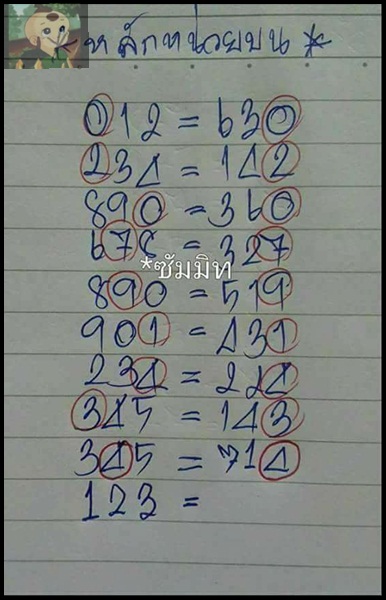 หลักหน่วยบน *
012 = 630
234 = 142
890 = 360
678 = 327
*ซัมมิท
890 = 519
901 = 431
234 = 224
345 = 143
345 = 714
123 =